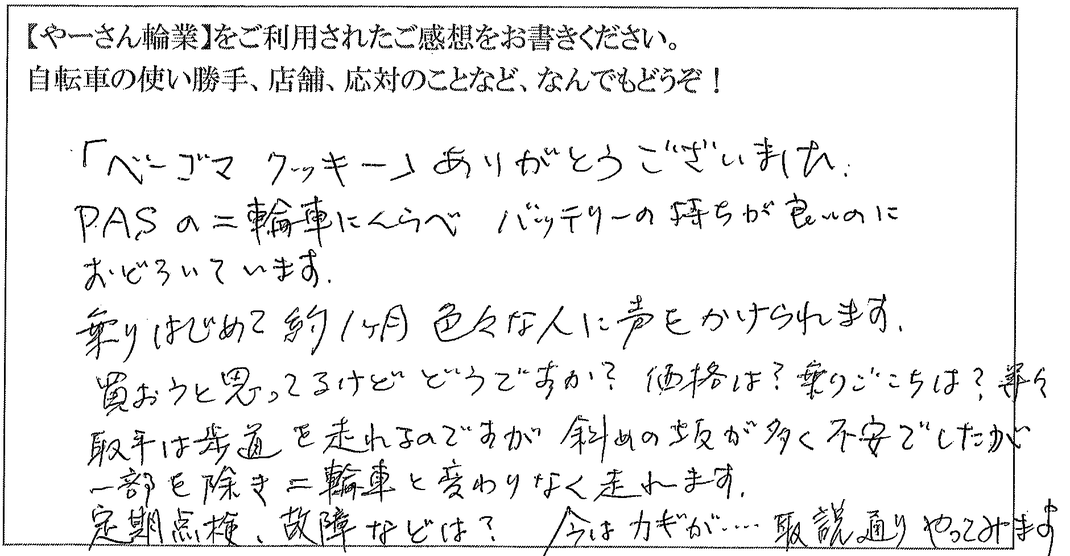 【やーさん輪業】をご利用されたご感想をお書きください。
自転車の使い勝手、店舗、応対のことなど、なんでもどうぞ！
「ベーゴマ クッキー」ありがとうございました.
PASの二輪車にくらべ バッテリーの持ちが良いのに
おどろいています.
乗りはじめて約1ヶ月 色々な人に声をかけられます.
買おうと思ってるけど どうですか? 価格は? 乗りごこちは? 等々
取手は歩道を走れるのですが 斜めの坂が多く不安でしたが
一部を除き二輪車と変わりなく走れます.
定期点検、故障などは? 今はカギが…. 取説通りやってみます